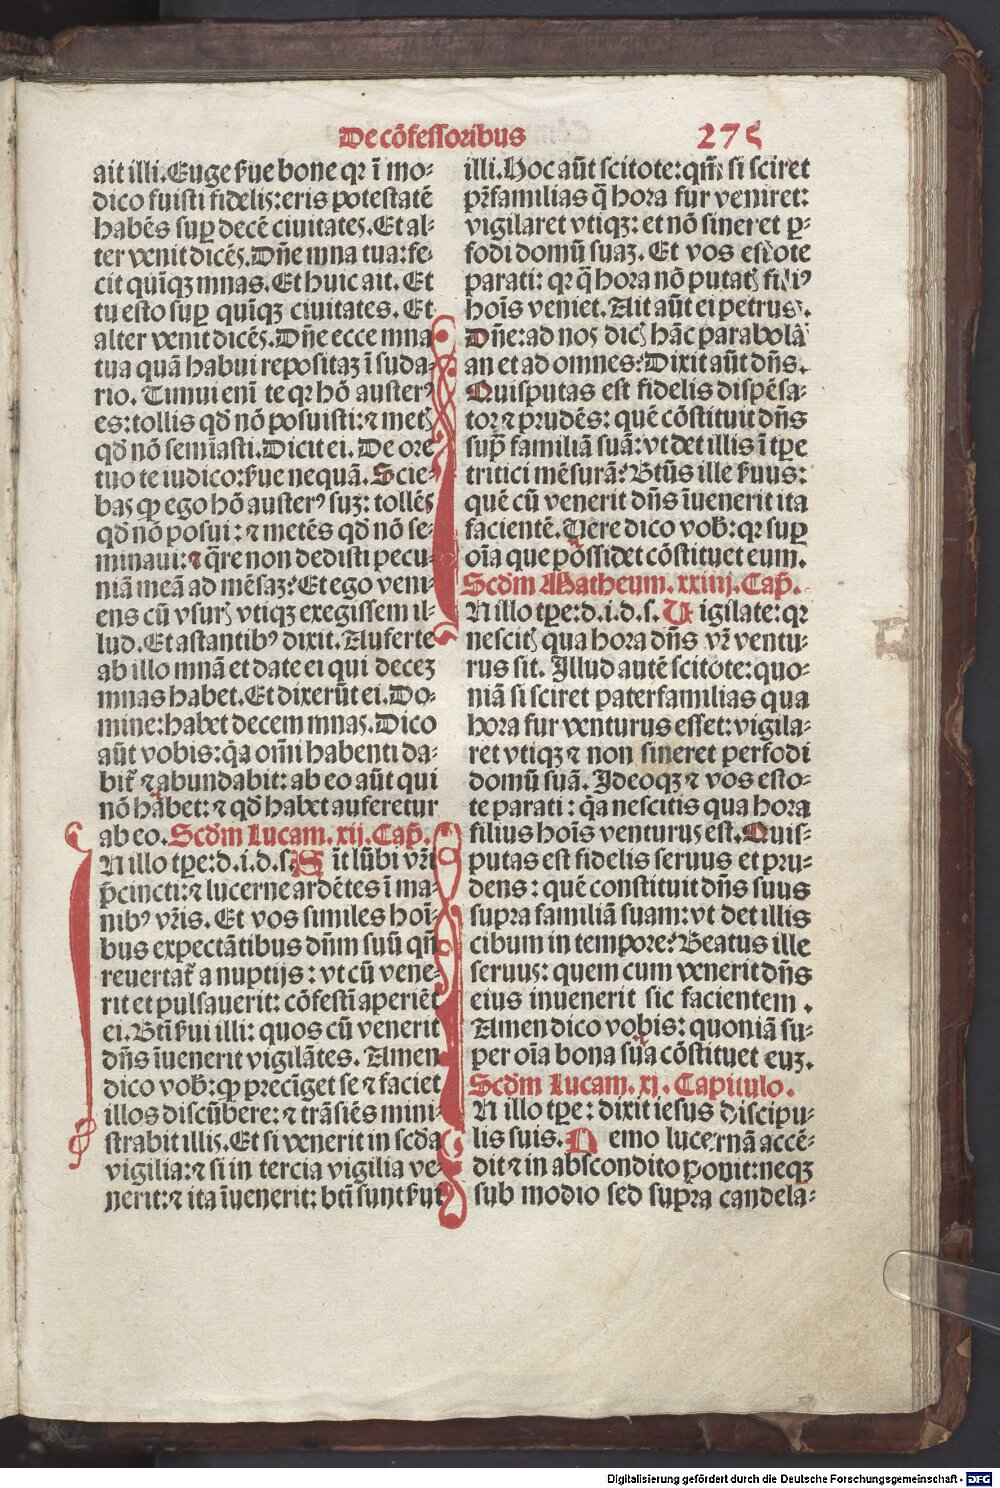 De cōfessoribus 275
ait illi. Euge ẜue bone qꝛ ī mo-
dico fuisti fidelis: eris potestatē
habēs suꝑ decē ciuitates. Et al-
ter venit dicēs. Dn̄e mna tua: fe-
cit quīqꝫ mnas. Et huic ait. Et
tu esto suꝑ quīqꝫ ciuitates. Et
alter venit dicēs. Dn̄e ecce mna
tua quā habui repositaꝫ ī suda-
rio. Timui eni te qꝛ hō austerꝰ
es: tollis qd̄ nō posuisti: ⁊ metꝭ
qd̄ nō semīasti. Dicit ei. De ore
tuo te iudico: ẜue nequā. Scie-
bas ꝙ ego hō austerꝰ suꝫ: tollēs
qd̄ nō posui: ⁊ metēs qd̄ nō se-
minaui: ⁊ q̄re non dedisti pecu-
niā meā ad mēsaꝫ? Et ego veni-
ens cū vsurꝭ vtiqꝫ exegissem il-
lud. Et astantibꝰ dixit. Auferte
ab illo mnā et date ei qui deceꝫ
mnas habet. Et dixerūt ei. Do-
mine: habet decem mnas. Dico
aūt vobis: q̄a om̄i habenti da-
bit̄ ⁊ abundabit: ab eo aūt qui
nō habet: ⁊ qd̄ habet auferetur
ab eo. Scd̄m Lucam. xij. Cap̄.
IN illo tp̄e: d. i. d. s. Sīt lūbi vr̄i
p̄cincti: ⁊ lucerne ardētes ī ma-
nibꝰ vr̄is. Et vos similes hoī-
bus expectātibus dn̄m suū qn̄
reuertat̄ a nuptijs: vt cū vene-
rit et pulsauerit: cōfestī aperiēt
ei. Btī ẜui illi: quos cū venerit
dn̄s īuenerit vigilātes. Amen
dico vob̄: ꝙ precīget se ⁊ faciet
illos discūbere: ⁊ trāsiēs mini-
strabit illis. Et si venerit in scd̄a
vigilia: ⁊ si in tercia vigilia ve-
nerit: ⁊ ita īuenerit: btī sunt ẜui
illi. Hoc aūt scitote: qm̄ si sciret
pr̄familias q̄ hora fur veniret:
vigilaret vtiqꝫ: et nō sineret ꝑ-
fodi domū suaꝫ. Et vos estote
parati: qꝛ q̄ hora nō putatꝭ filiꝰ
hoīs veniet. Ait aūt ei petrus.
Dn̄e: ad nos dicꝭ hāc parabolā
an et ad omnes? Dixit aūt dn̄s.
Quisputas est fidelis dispēsa-
tor ⁊ prudēs: quē cōstituit dn̄s
sup̄ familiā suā: vt det illis ī tp̄e
tritici mēsurā? Bt̄us ille ẜuus:
quē cū venerit dn̄s īuenerit ita
facientē. Uere dico vob̄: qꝛ suꝑ
oīa que possidet cōstituet eum.
Scd̄m Matheum. xxiiij. Cap̄.
IN illo tp̄e: d. i. d. s. Uigilate: qꝛ
nescitꝭ qua hora dn̄s vr̄ ventu-
rus sit. Illud autē scitote: quo-
niā si sciret paterfamilias qua
hora fur venturus esset: vigila-
ret vtiqꝫ ⁊ non sineret perfodi
domū suā. Ideoqꝫ ⁊ vos esto-
te parati: q̄a nescitis qua hora
filius hoīs venturus est. Quis-
putas est fidelis seruus et pru-
dens: quē constituit dn̄s suus
supra familiā suam: vt det illis
cibum in tempore? Beatus ille
seruus: quem cum venerit dn̄s
eius inuenerit sic facientem.
Amen dico vobis: quoniā su-
per oīa bona sua cōstituet euꝫ.
Scd̄m Lucam. xj. Capitulo.
IN illo tp̄e: dixit iesus discipu-
lis suis. Nemo lucernā accē-
dit ⁊ in abscondito ponit: neqꝫ
sub modio sed supra candela-
Digitalisierung gefördert durch die Deutsche Forschungsgemeinschaft - DFG